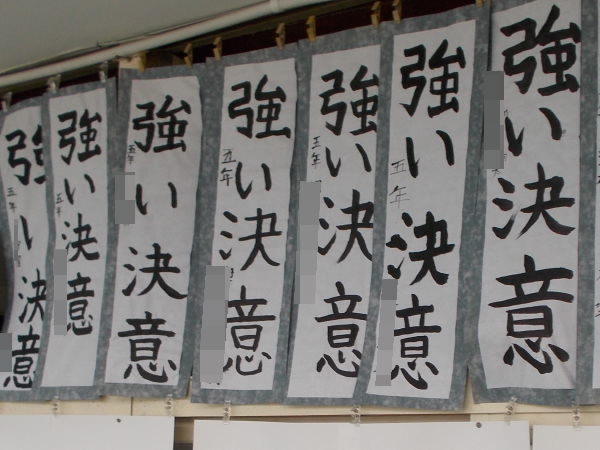 強い決意
五年
強い決意
三年
強い決意
五年
強い決意
五年
強い決意
五年
強い決意
五年
強い決意
五年